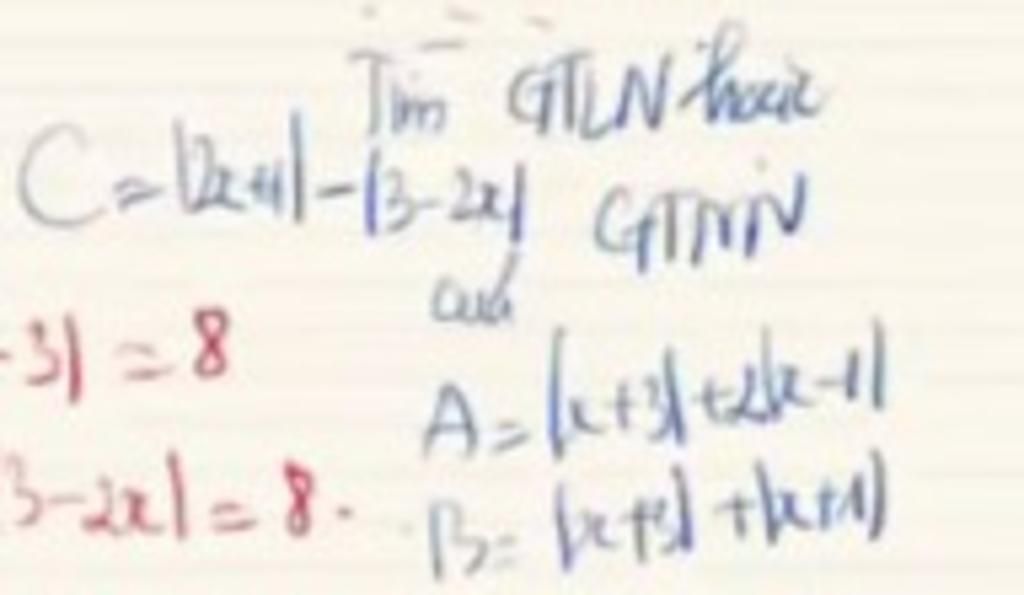 Tìm GTLN hoặc
C = |2x+1| - |3-2x| GTNN
của
3| = 8
A = |x+3| + 2|x-1|
3-2x| = 8.
B = |x+3| + |x+1|